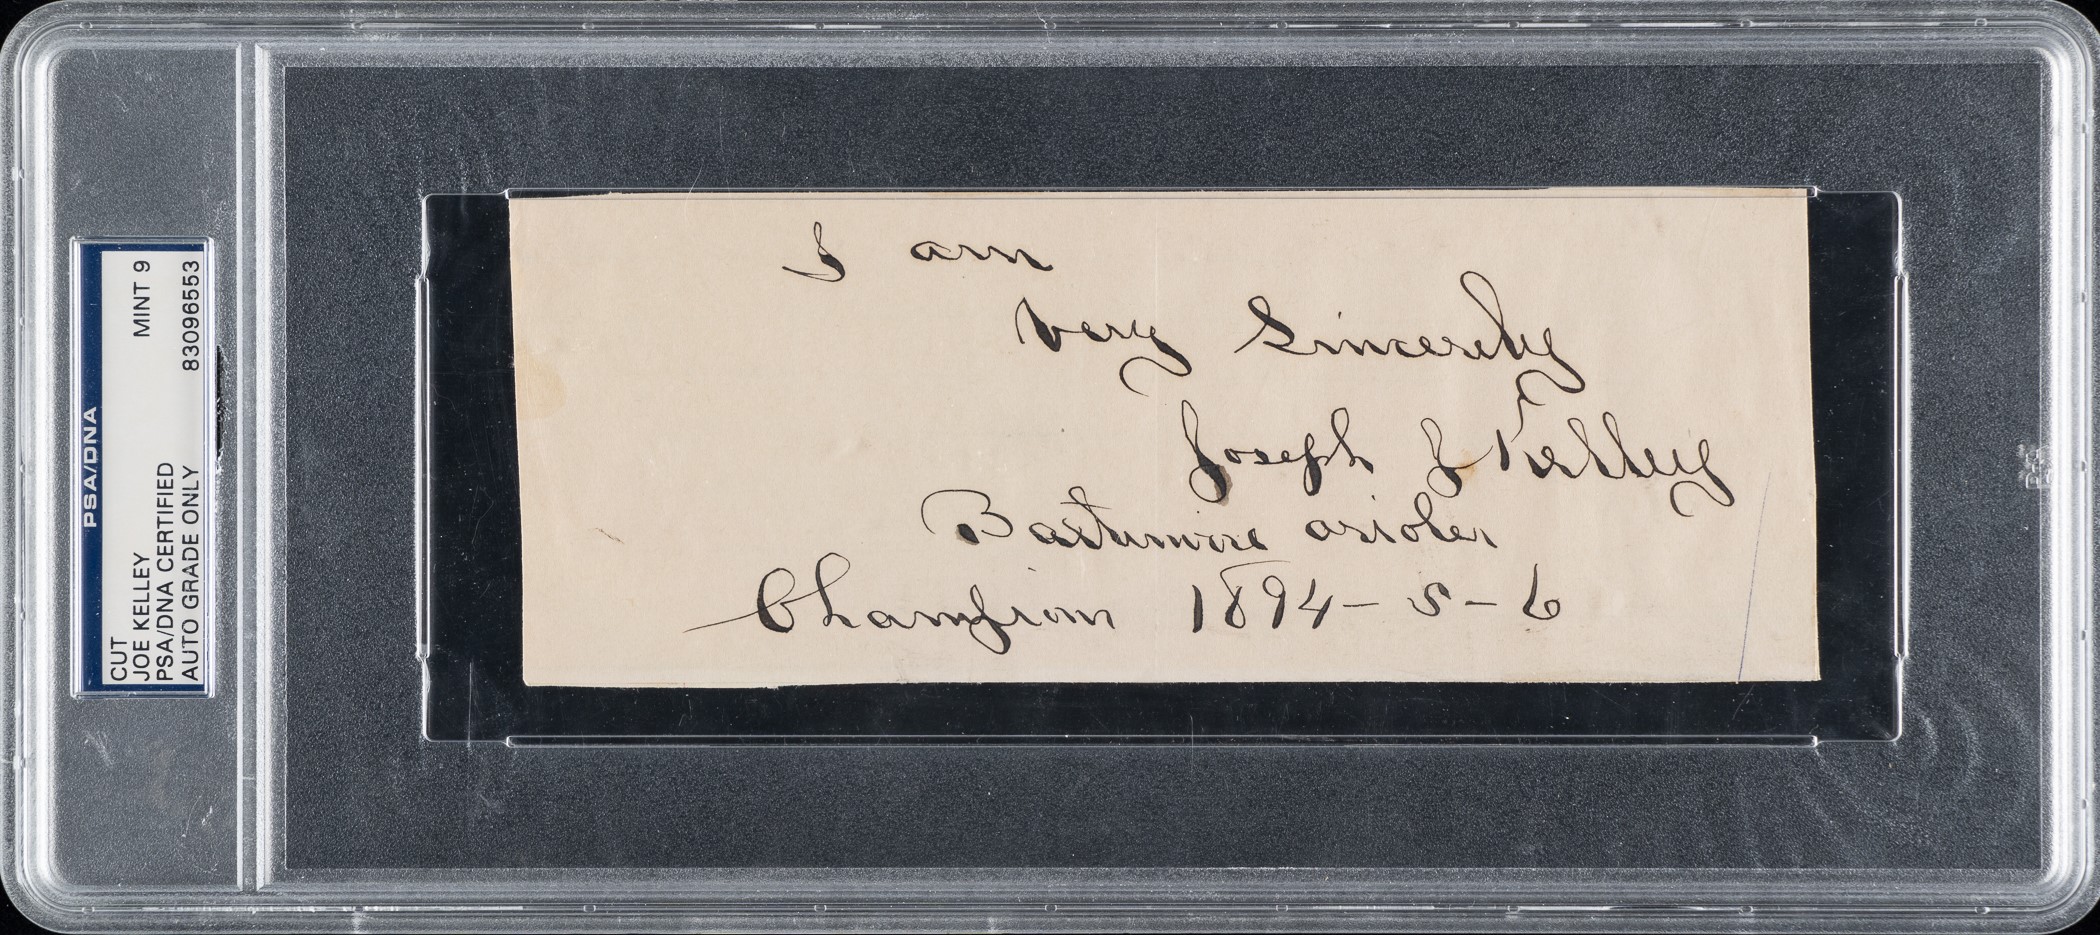 PSA/DNA
CUT MINT 9
JOE KELLEY
PSA/DNA CERTIFIED
AUTO GRADE ONLY 83096553
I am
Very Sincerely
Joseph J Kelley
Baltimore orioles
Champions 1894-5-6